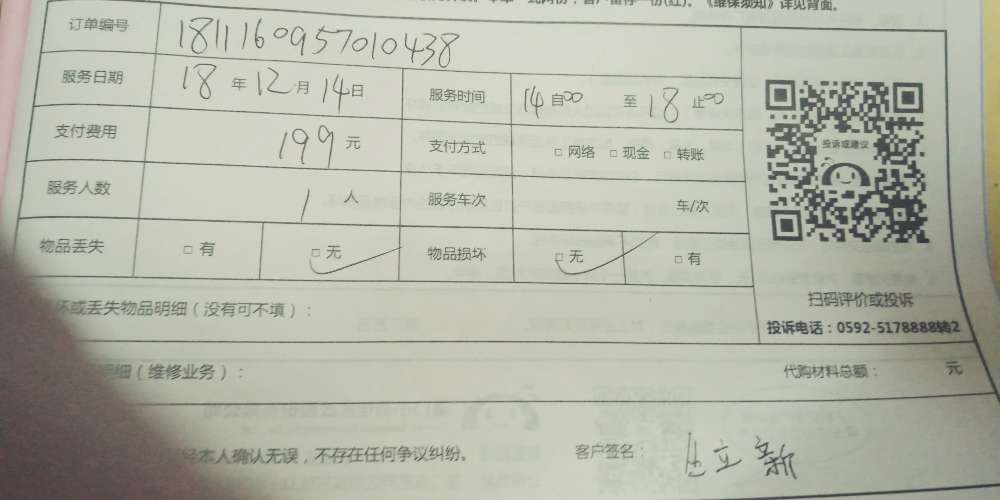 《维保须知》详见背面。
订单编号 1811160957010438
服务日期 18 年 12 月 14 日 服务时间 14 自00 至 18 止00
支付费用 199 元 支付方式 □ 网络 □ 现金 □ 转账
服务人数 1 人 服务车次 车/次
物品丢失 □ 有 □ 无 物品损坏 □ 无 □ 有
投诉或建议
扫码评价或投诉
投诉电话：0592-5178888转2
坏或丢失物品明细（没有可不填）：
明细（维修业务）： 代购材料总额： 元
经本人确认无误，不存在任何争议纠纷。 客户签名： 立新